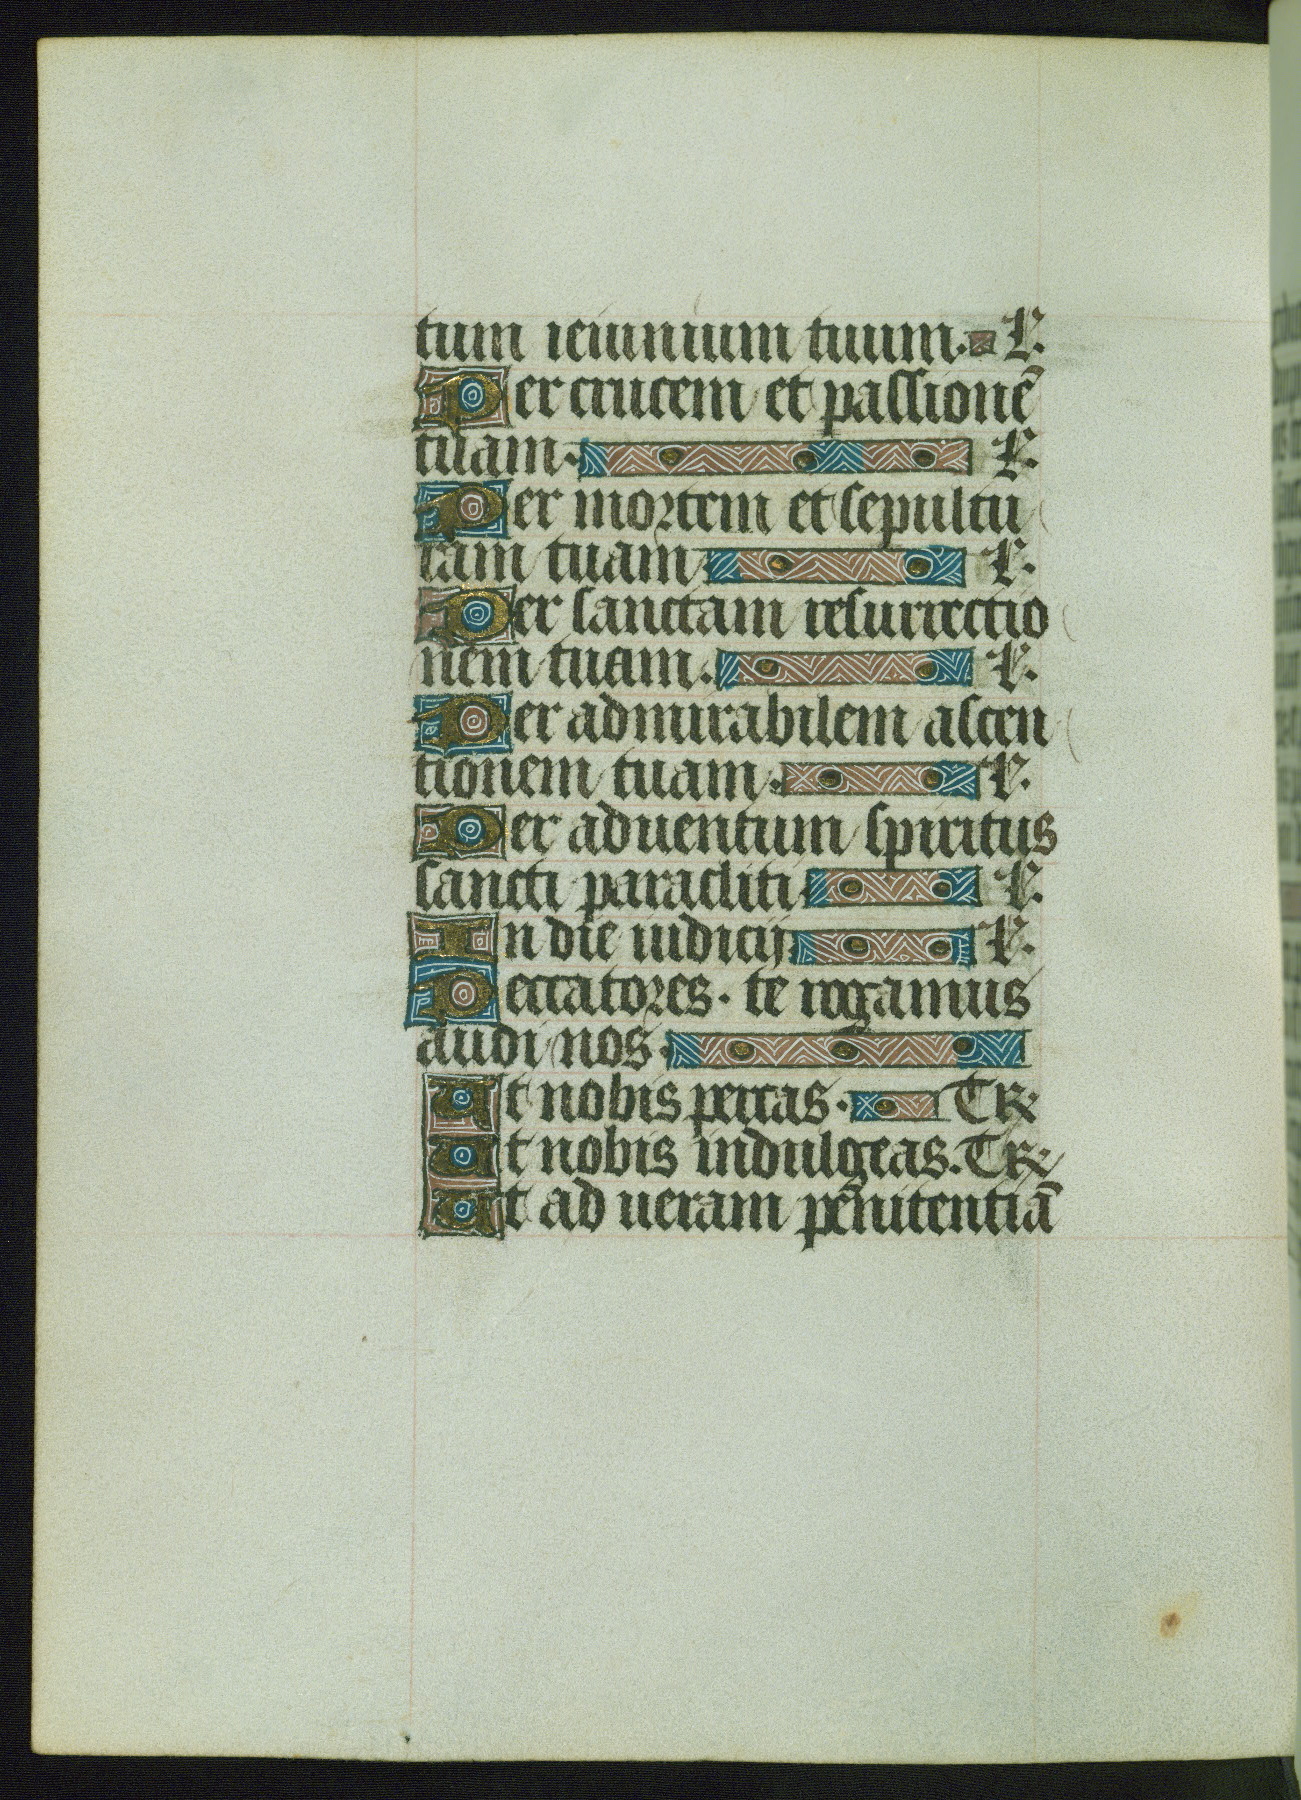 tum ieiunium tuum. L.
Per crucem et passionē
tuam. L.
Per mortem et sepultu
ram tuam. L.
Per sanctam resurrectio
nem tuam. L.
Per admirabilem ascen
tionem tuam. L.
Per aduentum spiritus
sancti paracliti. L.
In die iudicij. L.
Peccatores. te rogamus
audi nos.
Ut nobis percas. TR.
Ut nobis indulgeas. TR.
Ut ad ueram pēnitentiā